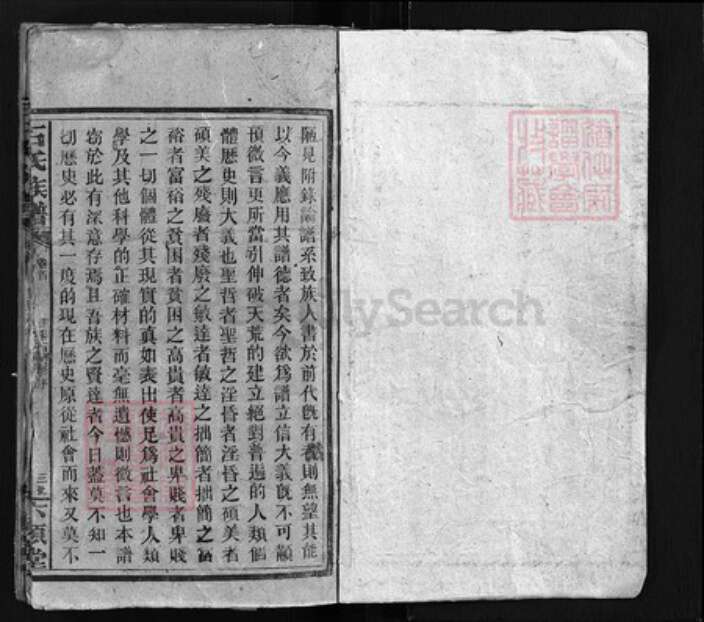 陋見附錄論譜系致族人書於前代既有者則無望其能
以今義應用其譜德者矣今欲為譜立信大義既不可顯
預微言更所當引伸破天荒的建立絕對普遍的人類個
體歷史則大義也聖哲者聖哲之淫昏者淫昏之碩美者
碩美之殘廢者殘廢之敏達者敏達之拙簡者拙簡之富
裕者富裕之貧困者貧困之高貴者高貴之卑賤者卑賤
之一切個體從其現實的真如表出使足為社會學人類
學及其他科學的正確材料而毫無遺憾則微言也本譜
窃於此有深意存焉且吾族之賢達者今日蓋莫不知一
切歷史必有其一度的現在歷史原從社會而來又莫不
石氏族譜
卷首
六順堂
FamilySearch